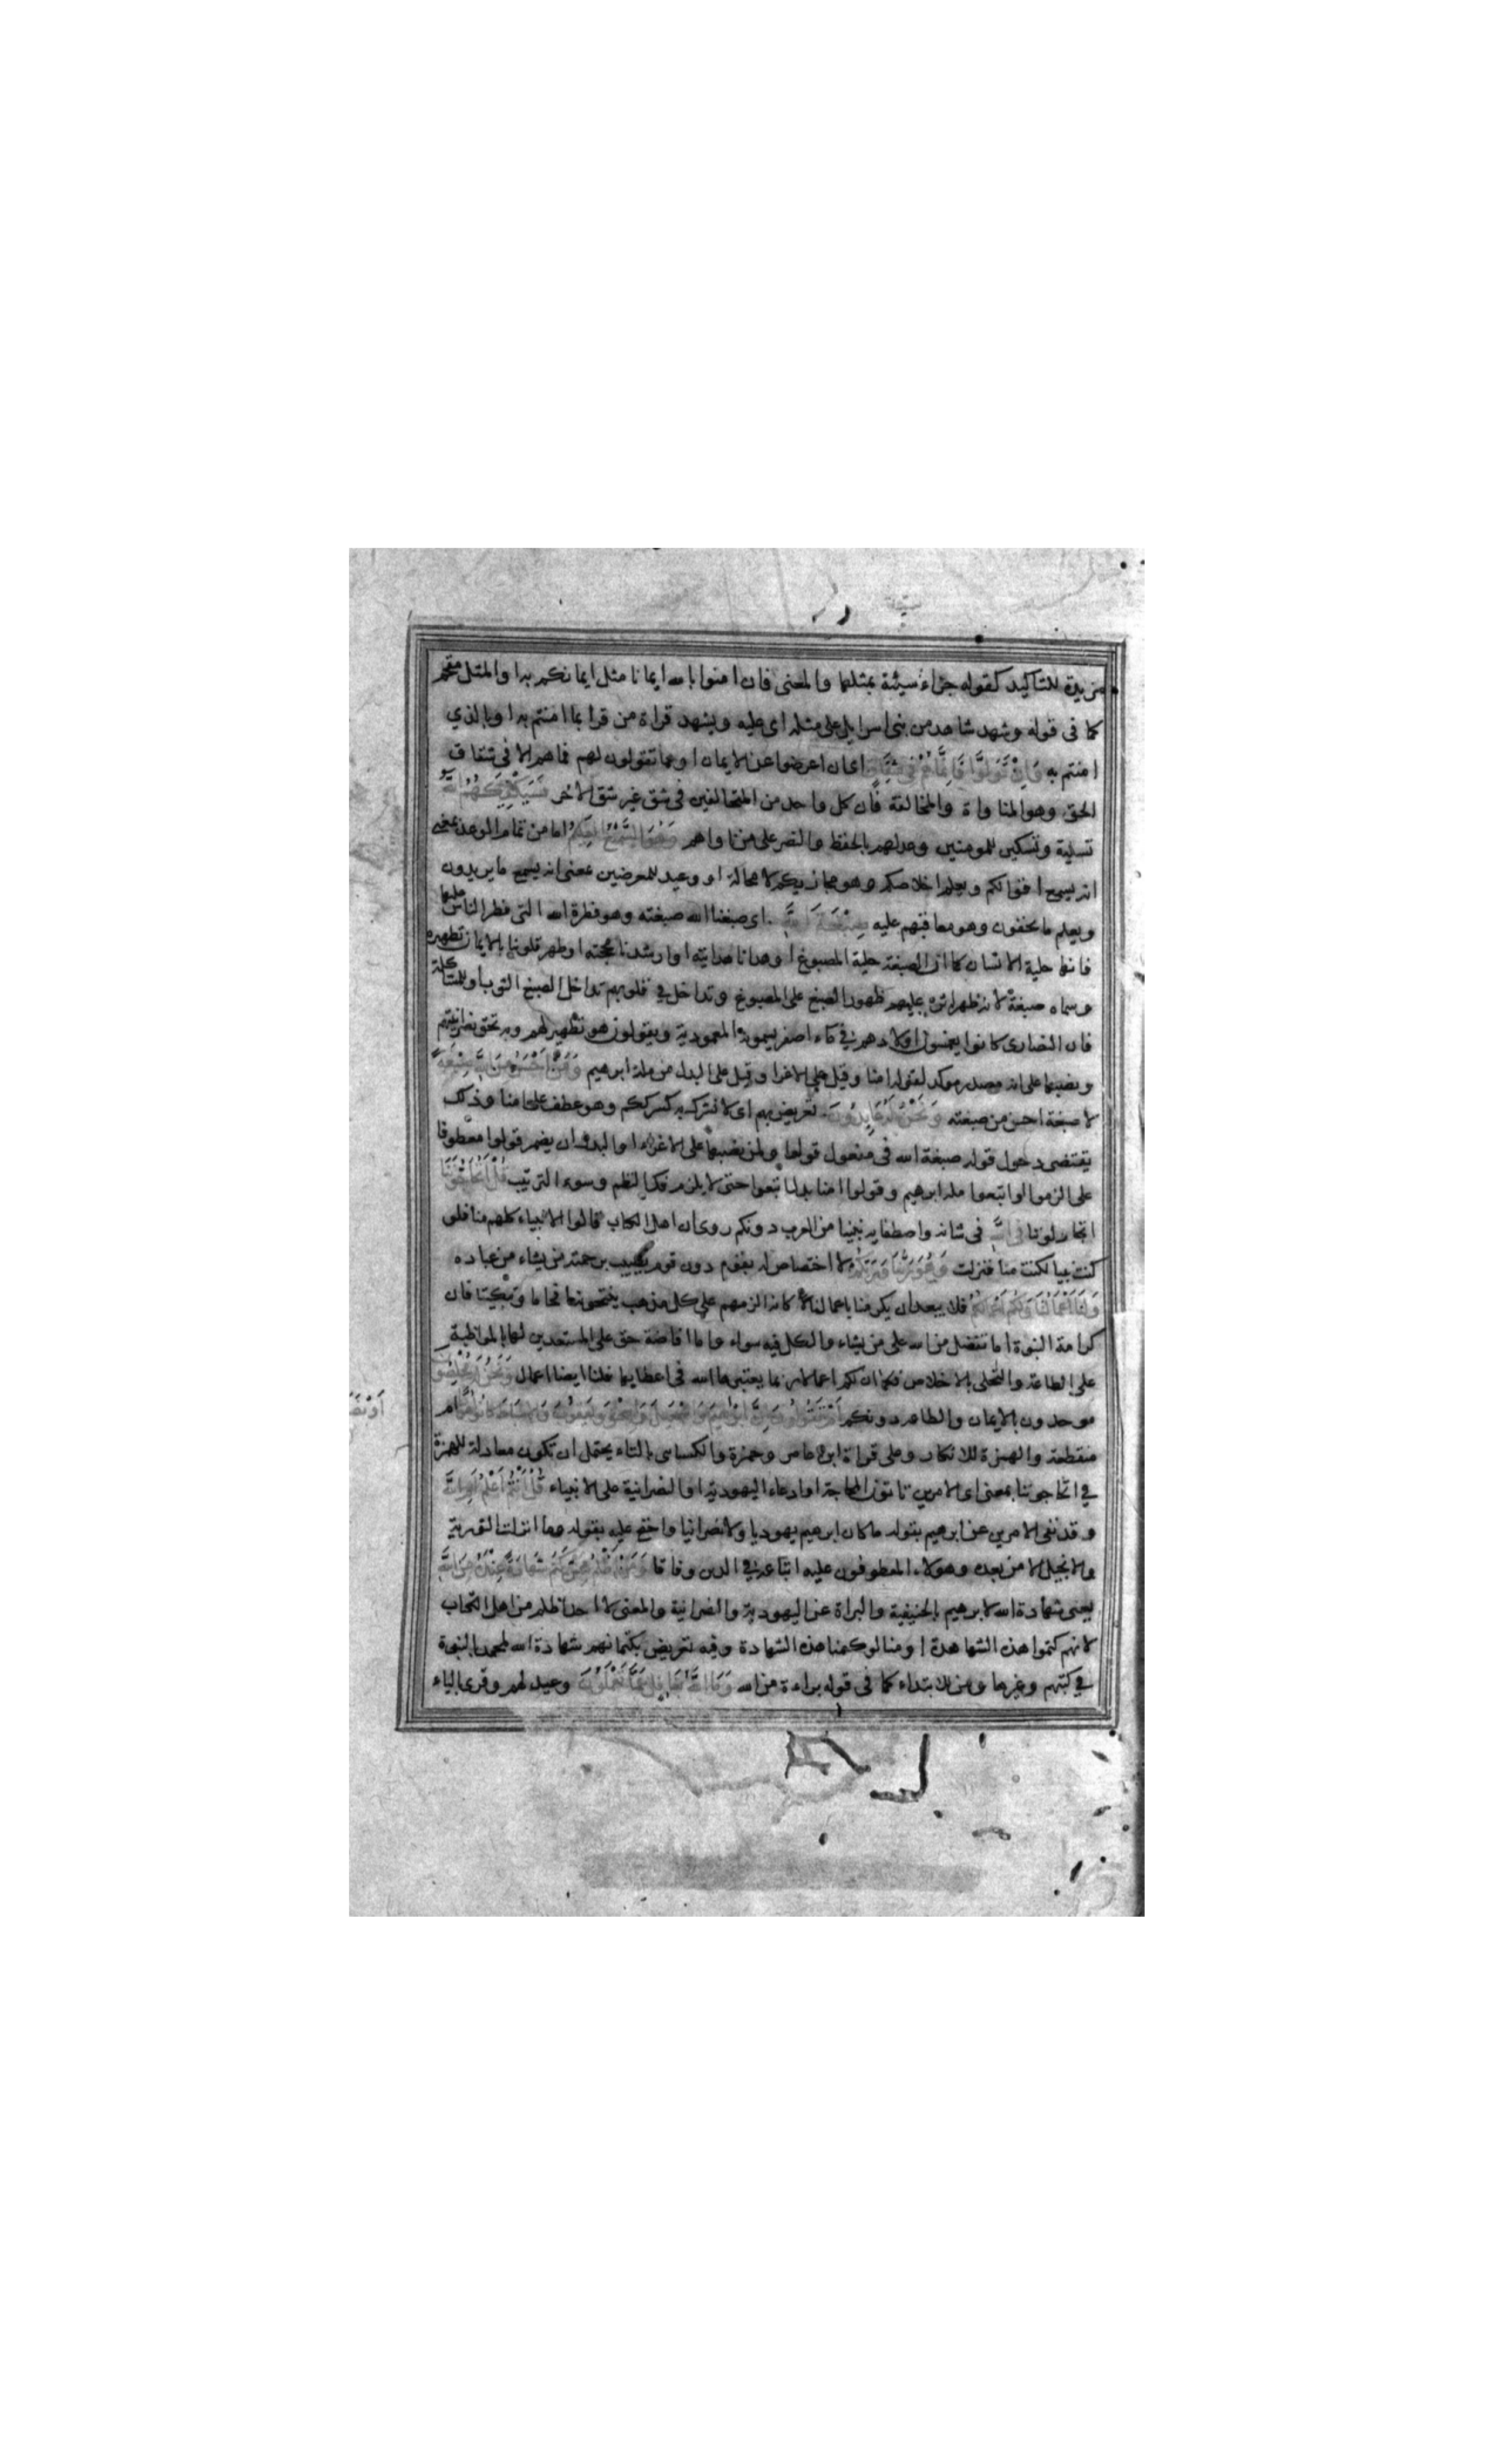 مزيدة للتاكيد كقوله جزاء سيئة بمثلها والمعنى فان امنوا بالله ايمانا مثل ايمانكم به او المثل مقحم
كما فى قوله وشهد شاهد من بنى اسرايل على مثله اى عليه ويشهد قراة من قرا بما امنتم به او بالذي
امنتم به فَاِنْ تَوَلَّوْا فَاِنَّمَا هُمْ فِى شِقَاقٍ اى ان اعرضوا عن الايمان او عما تقولون لهم فما هم الا فى شقاق
الحق وهو المناواة والمخالفة فان كل واحد من المتخالفين فى شق غير شق الاخر فَسَيَكْفِيكَهُمُ اللَّهُ
تسلية وتسكين للمومنين ووعد لهم بالحفظ والنصر على من ناواهم وَهُوَ السَّمِيعُ الْعَلِيمُ اما من تمام الوعد بمعنى
انه يسمع اقوالكم ويعلم اخلاصكم وهو مجازيكم لا محالة او وعيد للمعرضين بمعنى انه يسمع ما يريدون
ويعلم ما يخفون وهو معاقبهم عليه صِبْغَةَ اللَّهِ اى صبغنا الله صبغته وهو فطرة الله التى فطر الناس عليها
فانها حلية الانسان كما ان الصبغة حلية المصبوغ او هدانا هدايته او ارشدنا حجته او طهر قلوبنا بالايمان تطهيره
وسماه صبغة لانه ظهر اثره عليهم ظهور الصبغ على المصبوغ وتداخل في قلوبهم تداخل الصبغ الثوب او للمشاكلة
فان النصارى كانوا يغمسون اولادهم في ماء اصفر يسمونه المعمودية ويقولون هو تطهير لهم وبه تحقق نصرانيتهم
ونصبها على انه مصدر موكد لقوله امنا وقيل على الاغرا وقيل على البدل من ملة ابرهيم وَمَنْ اَحْسَنُ مِنَ اللَّهِ صِبْغَةً
لا صبغة احسن من صبغته وَنَحْنُ لَهُ عَابِدُونَ تعريض بهم اى لا نشرك به كشرككم وهو عطف على امنا وذلك
يقتضى دخول قوله صبغة الله فى مفعول قولوا ولمن ينصبها على الاغراء او البدل ان يضمر قولوا معطوفا
على الزموا او اتبعوا ملة ابرهيم وقولوا امنا بدل اتبعوا حتى لا يلزم فك النظم وسوء الترتيب قُلْ اَتُحَاجُّونَنَا
اتجادلوننا فِى اللَّهِ فى شانه واصطفايه نبينا من العرب دونكم روى ان اهل الكتاب قالوا الانبياء كلهم منا فلو
كنت نبيا لكنت منا فنزلت وَهُوَ رَبُّنَا وَرَبُّكُمْ لا اختصاص له بقوم دون قوم يصيب برحمته من يشاء من عباده
وَلَنَا اَعْمَالُنَا وَلَكُمْ اَعْمَالُكُمْ فلا يبعد ان يكرمنا باعمالنا كانه الزمهم على كل مذهب ينتحونه افحاما وتبكيتا فان
كرامة النبوة اما تفضل من الله على من يشاء والكل فيه سواء واما افاضة حق على المستعدين لها بالمواظبة
على الطاعة والتحلى بالاخلاص فكما ان لكم اعمالا ربما يعتبرها الله فى اعطايها فلنا ايضا اعمال وَنَحْنُ لَهُ مُخْلِصُونَ
موحدون بالايمان والطاعه دونكم اَمْ تَقُولُونَ اِنَّ اِبْرَاهِيمَ وَاِسْمَاعِيلَ وَاِسْحَقَ وَيَعْقُوبَ وَالْاَسْبَاطَ كَانُوا هُودًا ام
منقطعة والهمزة للانكار وعلى قراة ابن عامر وحمزة والكساى بالتاء يحتمل ان تكون معادلة للهمزة
في اتحاجوننا بمعنى اى الامرين تاتون المحاجة او ادعاء اليهودية او النصرانية على الانبياء قُلْ اَاَنْتُمْ اَعْلَمُ اَمِ اللَّهُ
وقد نفى الامرين عن ابرهيم بقوله ما كان ابرهيم يهوديا ولا نصرانيا واحتج عليه بقوله وما انزلت التورية
والانجيل الا من بعده وهولاء المعطوفون عليه اتباعه في الدين وفاقا وَمَنْ اَظْلَمُ مِمَّنْ كَتَمَ شَهَادَةً عِنْدَهُ مِنَ اللَّهِ
يعنى شهادة الله لابرهيم بالحنيفية والبراة عن اليهودية والنصرانية والمعنى لا احد اظلم من اهل الكتاب
لانهم كتموا هذه الشهادة او منا لو كتمنا هذه الشهادة وفيه تعريض بكتمانهم شهادة الله لمحمد بالنبوة
في كتبهم وغيرها ومن للابتداء كما فى قوله براءة من الله وَمَا اللَّهُ بِغَافِلٍ عَمَّا تَعْمَلُونَ وعيد لهم وقرى بالياء